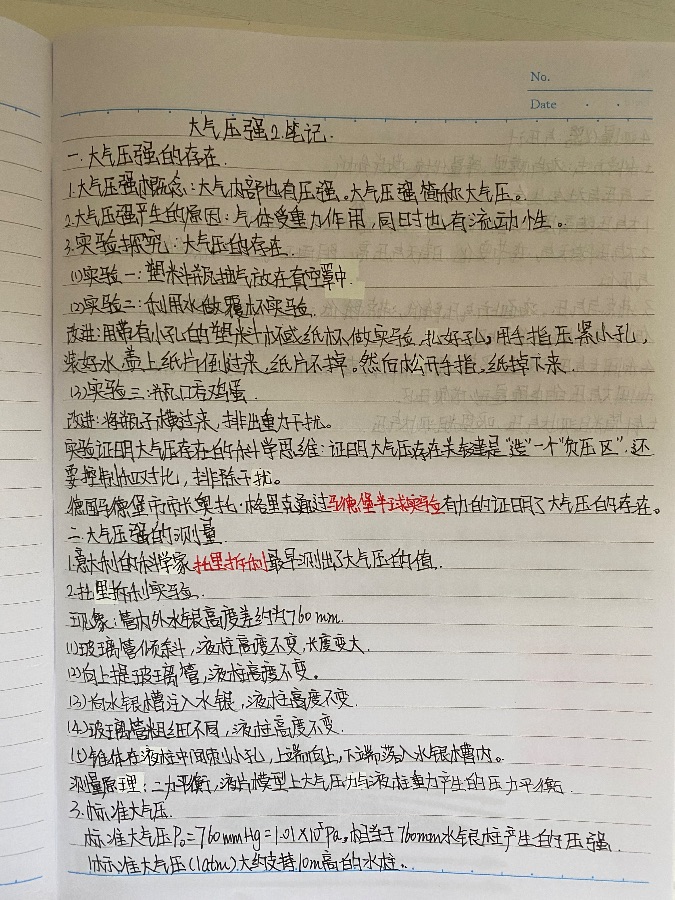 No.
Date
大气压强2.笔记.
一.大气压强的存在.
1.大气压强概念:大气内部也有压强。大气压强简称大气压。
2.大气压强产生的原因:气体受重力作用,同时也有流动性。
3.实验探究:大气压的存在.
(1)实验一:塑料瓶抽气放在真空罩中.
(2)实验二:利用水做覆杯实验.
改进:用带有小孔的塑料杯或纸杯做实验,扎好孔,用手指压紧小孔,
装好水,盖上纸片倒过来,纸片不掉。然后松开手指,纸掉下来.
(3)实验三:瓶口吞鸡蛋.
改进:将瓶子横过来,排出重力干扰。
实验证明大气压存在的科学思维:证明大气压存在关键是"造"一个"负压区".还
要控制恤对比,排除干扰。
德国马德堡市市长奥托·格里克通过马德堡半球实验有力的证明了大气压的存在。
二.大气压强的测量.
1.意大利的科学家托里拆利最早测出了大气压的值.
2.托里拆利实验.
现象:管内外水银高度差约为760mm.
(1)玻璃管倾斜,液柱高度不变,长度变大.
(2)向上提玻璃管,液柱高度不变。
(3)向水银槽注入水银,液柱高度不变.
(4)玻璃管粗细不同,液柱高度不变.
(5)锥体在液柱中间刺小孔,上端向上,下端落入水银槽内。
测量原理:二力平衡,液片模型上大气压力与液柱重力产生的压力平衡.
3.标准大气压.
标准大气压P₀=760mmHg=1.01×10⁵Pa,相当于760mm水银柱产生的压强.
1标准大气压(1atm)大约支持10m高的水柱.